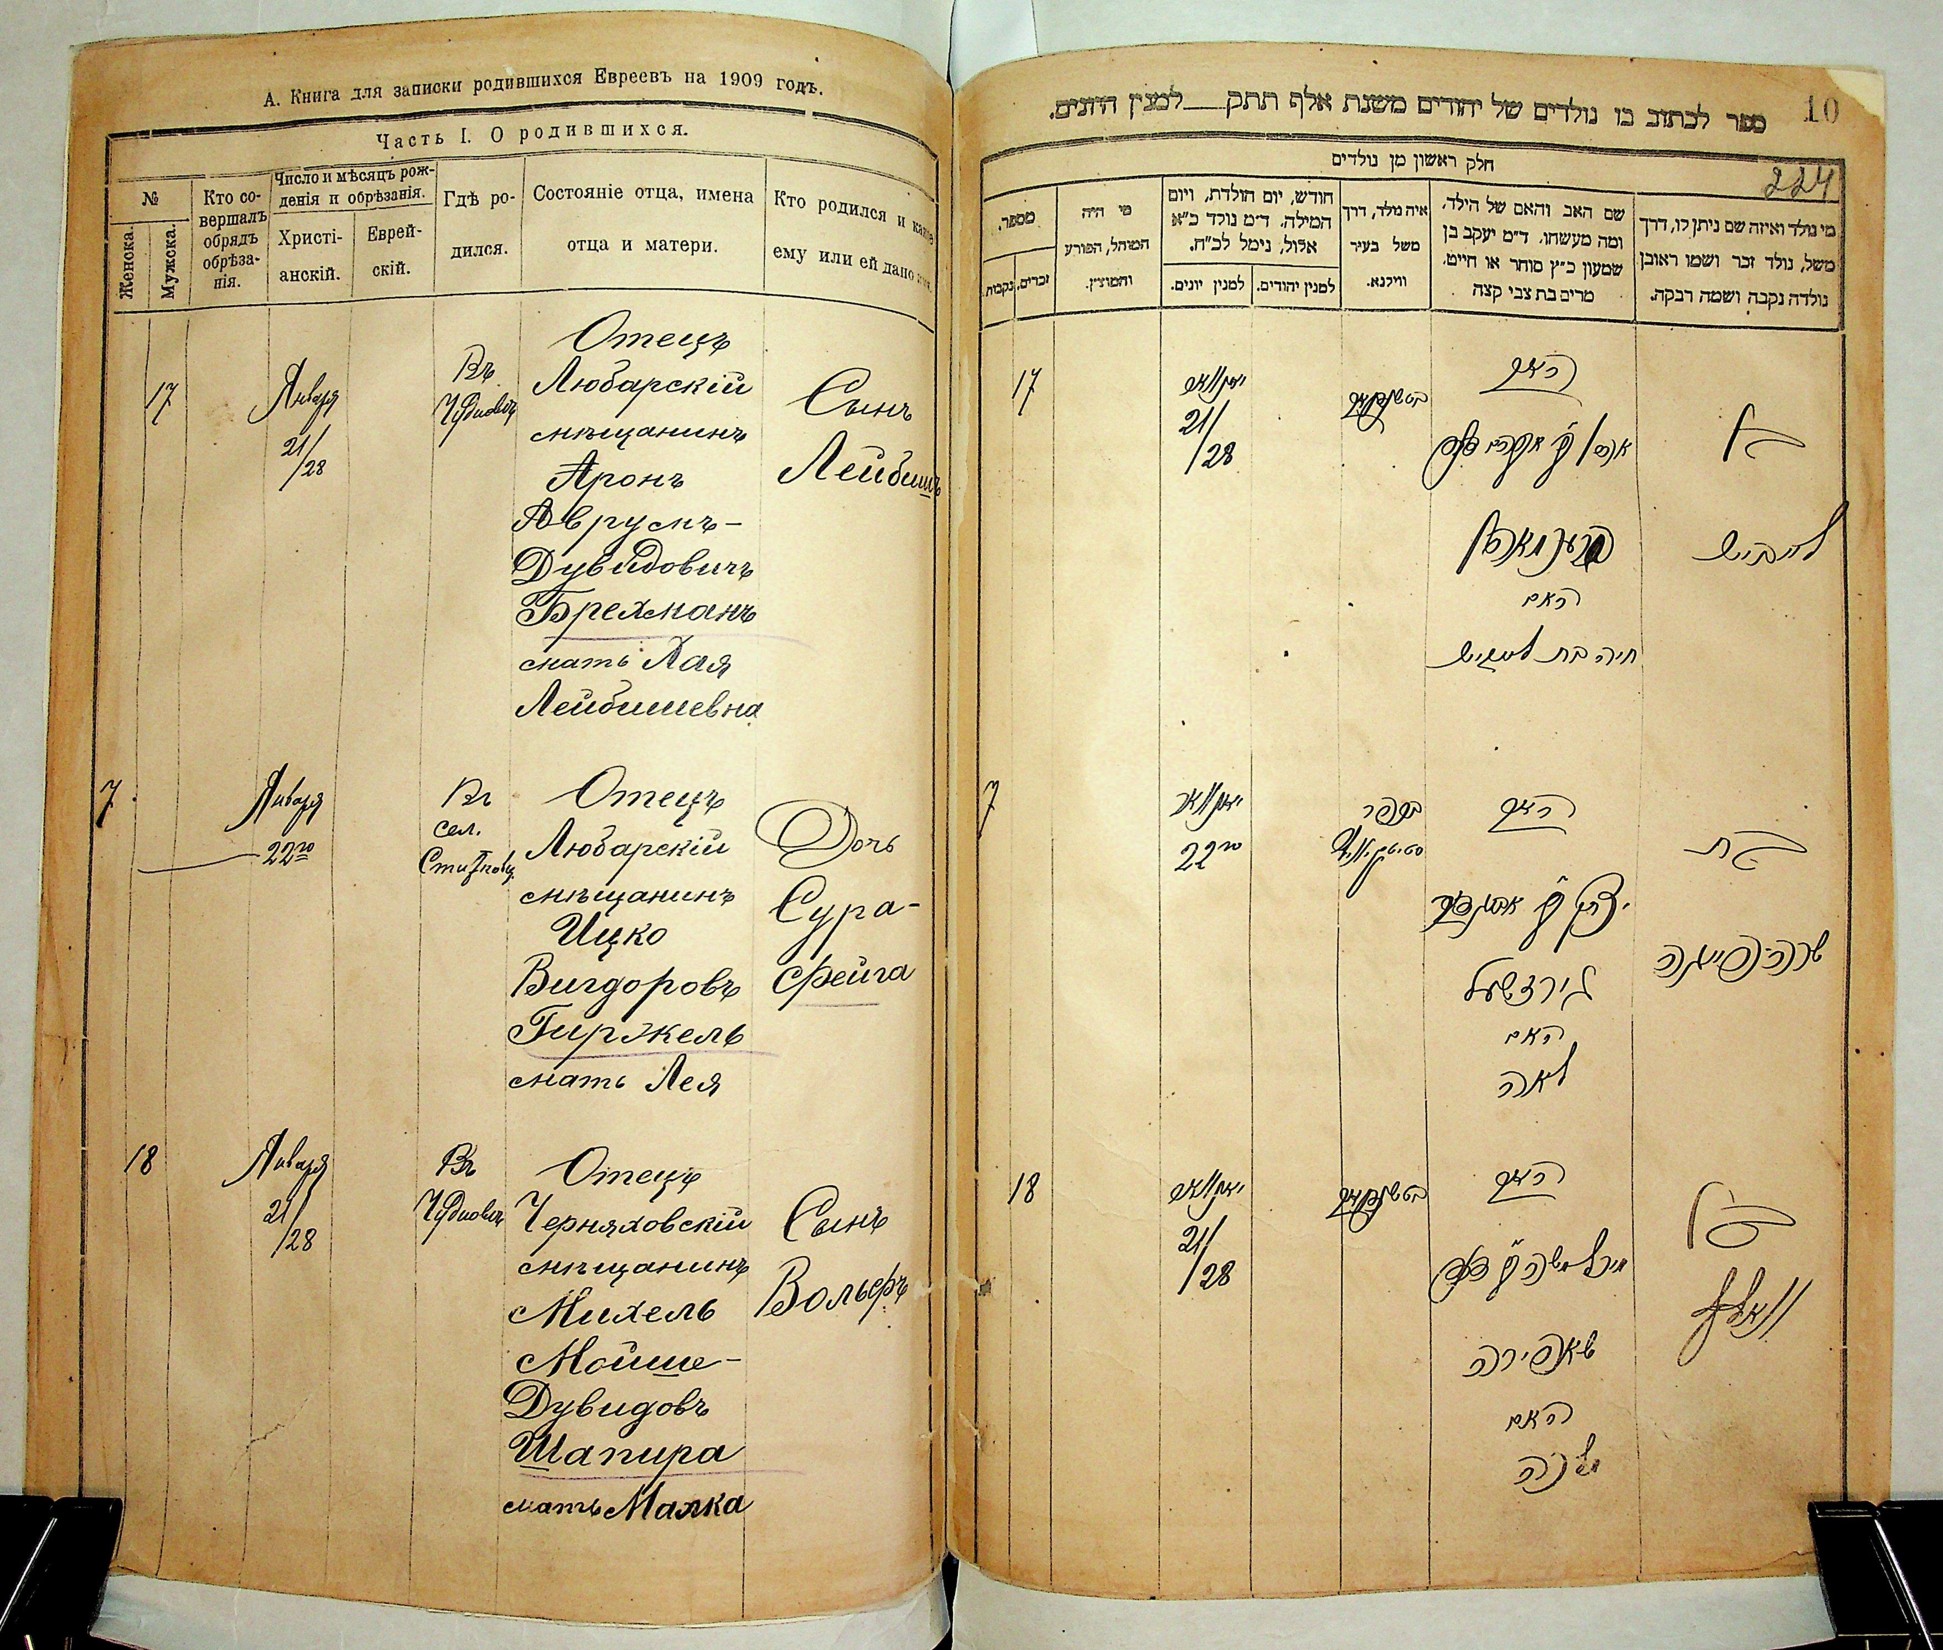 А. Книга для записки родившихся Евреевъ на 1909 годъ.
Часть I. О родившихся.
№
Женска.
Мужска.
Кто со-
вершалъ
обрядъ
обрѣза-
нія.
Число и мѣсяцъ рож-
денія и обрѣзанія.
Христі-
анскій.
Еврей-
скій.
Гдѣ ро-
дился.
Состояніе отца, имена
отца и матери.
Кто родился и какое
ему или ей дано
17
Января
21/
/28
Въ
Чудновѣ
Отецъ
Любарскій
мѣщанинъ
Аронъ
Аврумъ-
Дувидовичъ
Брехманъ
мать Хая
Лейбишевна
Сынъ
Лейбишъ
7
Января
22го
Въ
сел.
Отецъ
Любарскій
мѣщанинъ
Ицко
Вигдоровъ
Гиржель
мать Лея
Дочь
Сура-
Фейга
18
Января
21/
/28
Въ
Чудновѣ
Отецъ
Черняховскій
мѣщанинъ
Михель
Мойше-
Дувидовъ
Шапира
мать Малка
Сынъ
Вольфъ
10
ספר לכתוב בו נולדים של יהודים משנת אלף תתק למנין היונים.
224
חלק ראשון מן נולדים
מי נולד ואיזה שם ניתן לו, דרך
משל, נולד זכר ושמו ראובן
נולדה נקבה ושמה רבקה.
שם האב והאם של הילד,
ומה מעשהו. ד״מ יעקב בן
שמעון כ״ץ סוחר או חייט,
מרים בת צבי קצה
איה נולד, דרך
משל בעיר
ווילנא.
חודש, יום הולדת, ויום
המילה. ד״מ נולד כ״א
אלול, נימל לכ״ח.
למנין יהודים.
למנין יונים.
מי היה
המוהל, הפורע
והמוצץ.
מספר.
זכרים,
נקבות.
17
יאנואר
21/
/28
האב
האם
חיה בת לייביש
בן
לייביש
7
יאנואר
22го
בכפר
האב
האם
לאה
בת
שרה־פייגה
18
יאנואר
21/
/28
האב
שאפירה
האם
מלכה
בן
וואלף